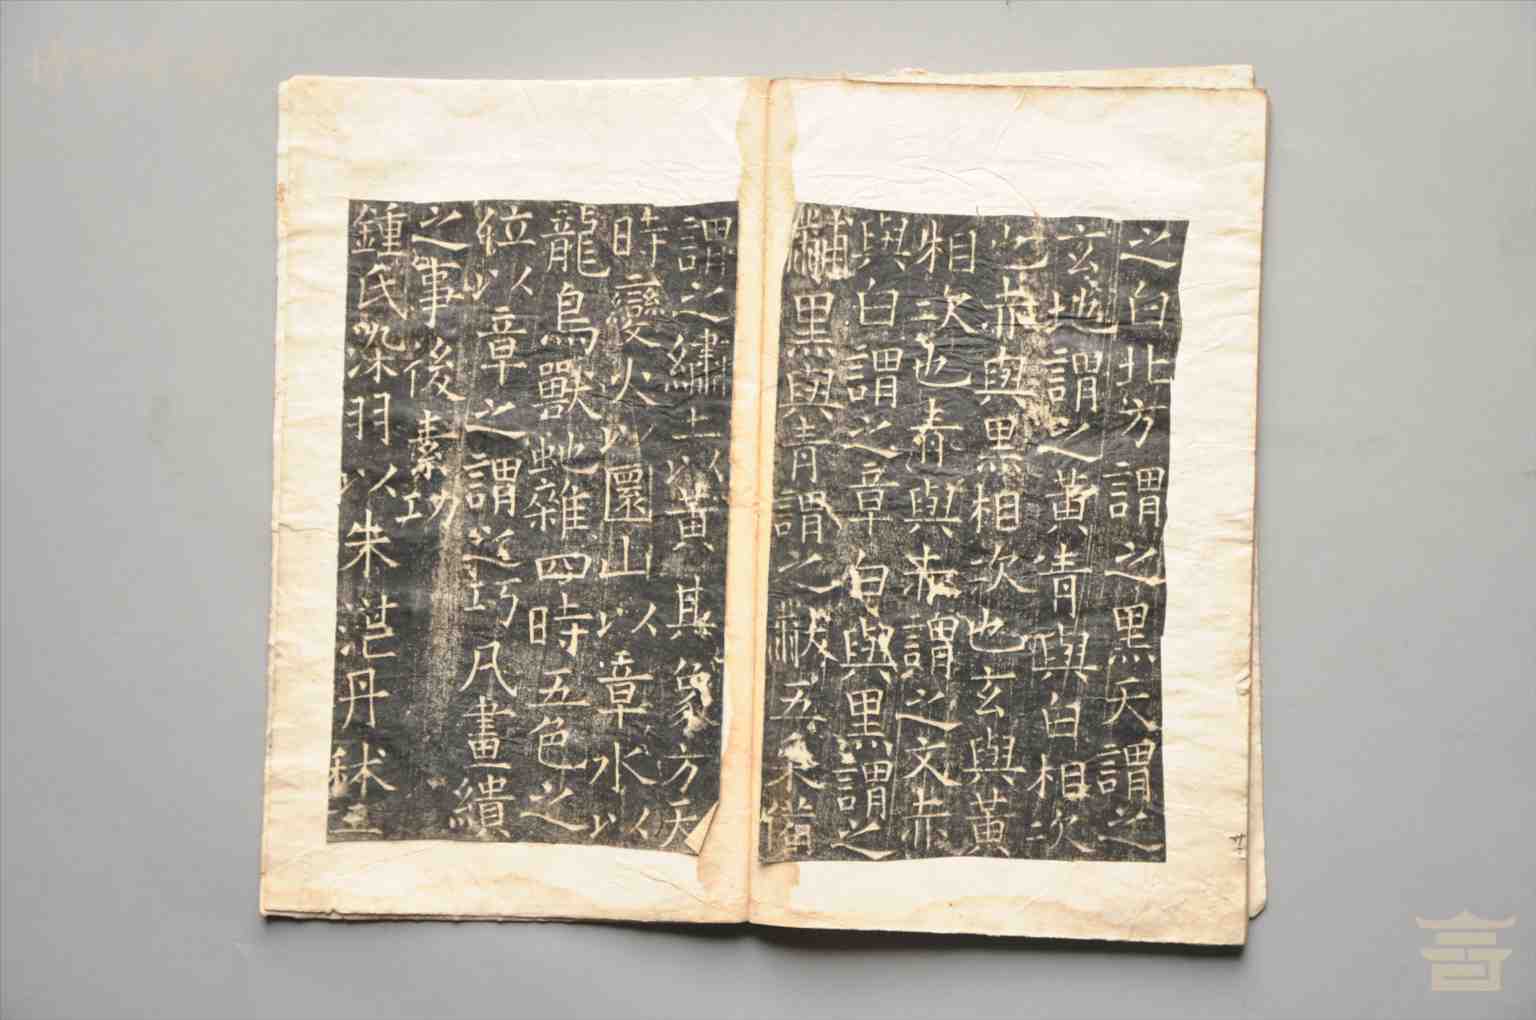 之白北方謂之黑天謂之
玄地謂之黃青與白相次
也赤與黑相次也玄與黃
相次也青與赤謂之文赤
與白謂之章白與黑謂之
黼黑與青謂之黻五采備
謂之繡土以黃其象方天
時變火以圜山以章水以
龍鳥獸虵雜四時五色之
位以章之謂之巧凡畫繢
之事後素功
鍾氏染羽以朱湛丹秫三